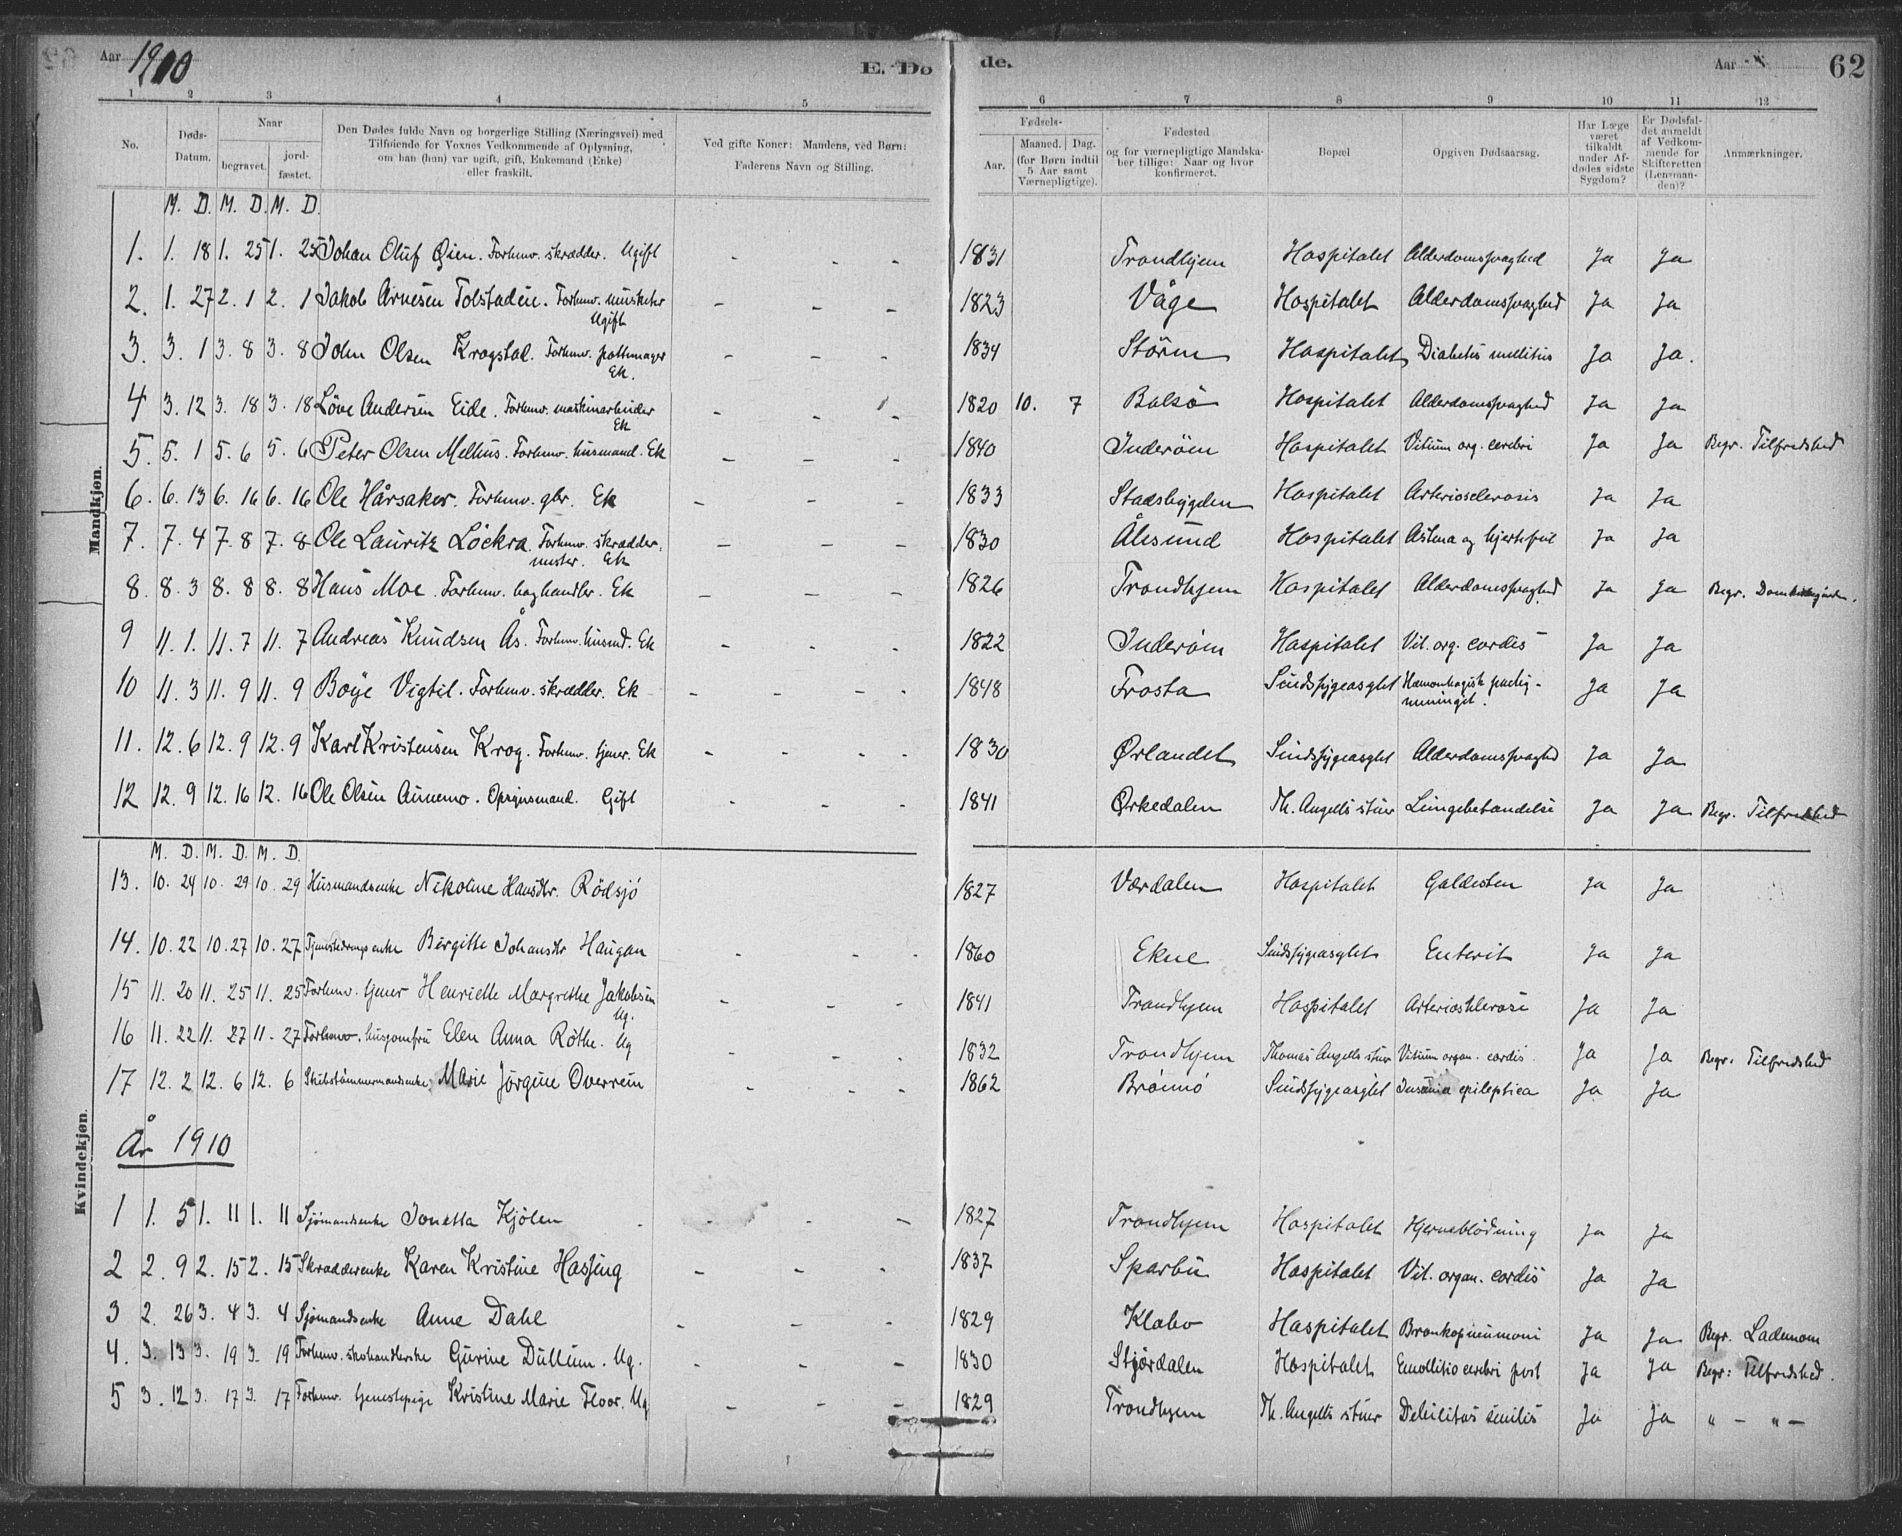 Aar 1910 E. Døde. Aar 62
1 2 3 4 5 6 7 8 9 10 11 12
No. Døds-Datum. Naar begravet. jordfæstet. Den Dødes fulde Navn og borgerlige Stilling (Næringsvei) med Tilføiende for Voxnes Vedkommende af Oplysning, om han (hun) var ugift, gift, Enkemand (Enke) eller fraskilt. Ved gifte Koner: Mandens, ved Børn: Faderens Navn og Stilling. Fødsels- Aar. Maaned. Dag. (for Børn indtil 5 Aar samt Værnepligtige). Fødested og for værnepligtige Mandskaber tillige: Naar og hvor konfirmeret. Bopæl Opgiven Dødsaarsag. Har Læge været tilkaldt under Afdødes sidste Sygdom? Er Dødsfaldet anmeldt af Vedkommende for Skifteretten (Lensmanden)? Anmærkninger.
Mandkjøn.
M. D. M. D. M. D.
1. 1. 18 1. 25 1. 25 Johan Oluf Øien. Forhenv. skrædder. Ugift - - - 1831 Trondhjem Hospitalet Alderdomssvaghed Ja Ja
2. 1. 27 2. 1 2. 1 Jakob Arnesen Tolstadeie. Forhenv. musketer Ugift - - - 1823 Våge Hospitalet Alderdomssvaghed Ja Ja
3. 3. 1 3. 8 3. 8 John Olsen Krogstad. Forhenv. pottemager Ek. - - - 1834 Støren Hospitalet Diabetes mellitus Ja Ja.
4 3. 12 3. 18 3. 18 Löve Andersen Eide. Forhenv. maskinarbeider Ek - - 1820 10. 7 Bolsø Hospitalet Alderdomssvaghed Ja Ja
5. 5. 1 5. 6 5. 6 Peter Olsen Melhus. Forhenv. husmand. Ek - - - 1840 Inderøen Hospitalet Vitium org. cerebri Ja Ja Begr. Tilfredshed
6. 6. 13 6. 16 6. 16 Ole Hårsaker. Forhenv. gbr. Ek - - - 1833 Stadsbygden Hospitalet Arteriosclerosis Ja Ja
7. 7. 4 7. 8 7. 8 Ole Lauritz Löckra. Forhenv. skræddermester. Ek - - - 1830 Ålesund Hospitalet Astma og hjertefeil Ja Ja
8. 8. 3 8. 8 8. 8 Hans Moe. Forhenv. boghandler. Ek - - - 1826 Trondhjem Hospitalet Alderdomssvaghed Ja Ja Begr.
9 11. 1. 11. 7 11. 7 Andreas Knudsen Ås. Forhenv. husmd. Ek - - - 1822 Inderøen Hospitalet Vit. org. cordis Ja Ja
10 11. 3 11. 9 11. 9 Boye Vigtil. Forhenv. skrædder. Ek - - - 1848 Frosta Sindssygeasylet Hæmorrhagisk Ja Ja
11. 12. 6 12. 9 12. 9 Karl Kristensen Krog. Forhenv. tjener. Ek - - - 1830 Ørlandet Sindssygeasylet Alderdomssvaghed Ja Ja
12 12. 9 12. 16 12. 16 Ole Olsen Aunemo. Opsynsmand. Gift - - - 1841 Ørkedalen Th. Angells stuer Lungebetændelse Ja Ja Begr. Tilfredshed
Kvindekjøn.
M. D. M. D. M. D.
13. 10. 24 10. 29 10. 29 Husmandsenke Nikoline Hansdtr. Rødsjö 1827 Værdalen Hospitalet Galdesten Ja Ja
14. 10. 22 10. 27 10. 27 Tjenestedrengsenke Birgitte Johansdtr Haugan - - - 1860 Ekne Sindssygeasylet Enterit Ja Ja
15 11. 20 11. 25 11. 25 Forhenv. tjener Henriette Margrethe Jakobsen Ug. - - - 1841 Trondhjem Hospitalet Arteriosklerose Ja Ja
16 11. 22 11. 27 11. 27 Forhenv. husjomfru Elen Anna Röthe. Ug - - - 1832 Trondhjem Thomas Angells stuer Vitium organ. cordis. Ja Ja Begr. Tilfredshed
17 12. 2 12. 6 12. 6 Skibstømmermandsenke, Marie Jörgine Overrein - - - 1862 Brønnø Sindssygeasylet Insania epileptica Ja Ja
År 1910
1 1. 5 1. 11 1. 11 Sjømandsenke Jonetta Kjölen - - - 1827 Trondhjem Hospitalet Hjerneblödning Ja Ja
2 2. 9 2. 15 2. 15 Skrædderenke Karen Kristine Hasfing - - - 1837 Sparbu Hospitalet Vit. organ. cordis Ja Ja
3 2. 26 3. 4 3. 4 Sjömandsenke Anne Dahl - - - 1829 Klæbo Hospitalet Bronkopneumoni Ja Ja Begr. Lademoen
4. 3. 13 3. 19 3. 19 Forhenv. skohandlerske Gurine Dullum. Ug. - - - 1830 Stjørdalen Hospitalet Emollitio cerebri post Ja Ja Begr: Tilfredshed.
5 3. 12 3. 17 3. 17 Forhenv. tjenestepige Kristine Marie Floor. Ug - - - 1829 Trondhjem Th. Angells stuer Debilitas senilis Ja Ja " - " -